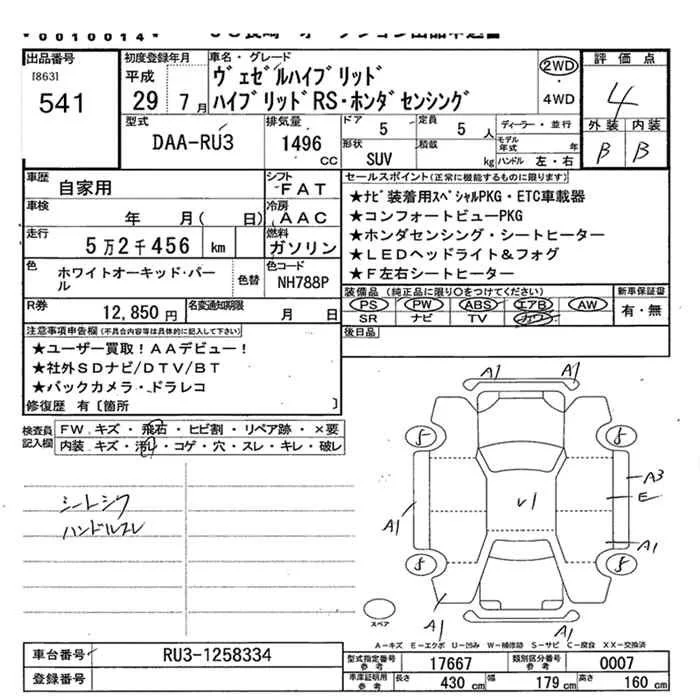 *0010014*
出品番号
[863]
541
初度登録年月
平成
29 7月
車名・グレード
ヴェゼルハイブリッド
ハイブリッドRS・ホンダセンシング
2WD
4WD
評価点
4
外装 内装
B B
型式
DAA-RU3
排気量
1496
CC
ドア 5
定員 5 人
形状
SUV
積載
kg
ディーラー・並行
モデル年式 年
ハンドル 左・右
車歴
自家用
シフト
FAT
車検
年 月( 日)
冷房
AAC
走行
5万2千456 km
燃料
ガソリン
色
ホワイトオーキッド・パール
色替
色コード
NH788P
R券
12,850円
名変通知期限
月 日
セールスポイント(正常に機能するものに限ります。)
★ナビ装着用スペシャルPKG・ETC車載器
★コンフォートビューPKG
★ホンダセンシング・シートヒーター
★LEDヘッドライト&フォグ
★F左右シートヒーター
装備品(純正品に限り○をつけてください)
PS PW ABS エアB AW
SR ナビ TV カワ
新車保証書
有・無
後日品
注意事項申告欄(不具合内容等は具体的に記入して下さい)
★ユーザー買取!AAデビュー!
★社外SDナビ/DTV/BT
★バックカメラ・ドラレコ
修復歴 有〔箇所 〕
検査員記入欄
FW. キズ・飛石・ヒビ割・リペア跡・×要
内装・キズ・汚れ・コゲ・穴・スレ・キレ・破レ
シートシワ
ハンドルスレ
A1 A1
5 5
A3
E
V1
A1
A1
5 5
A1 A1
スペア
A-キズ E-エクボ U-凹み W-補修跡 S-サビ C-腐食 XX-交換済
車台番号
RU3-1258334
登録番号
型式指定番号参考
17667
類別区分番号参考
0007
車庫証明用参考
長さ 430 cm
幅 179 cm
高さ 160 cm